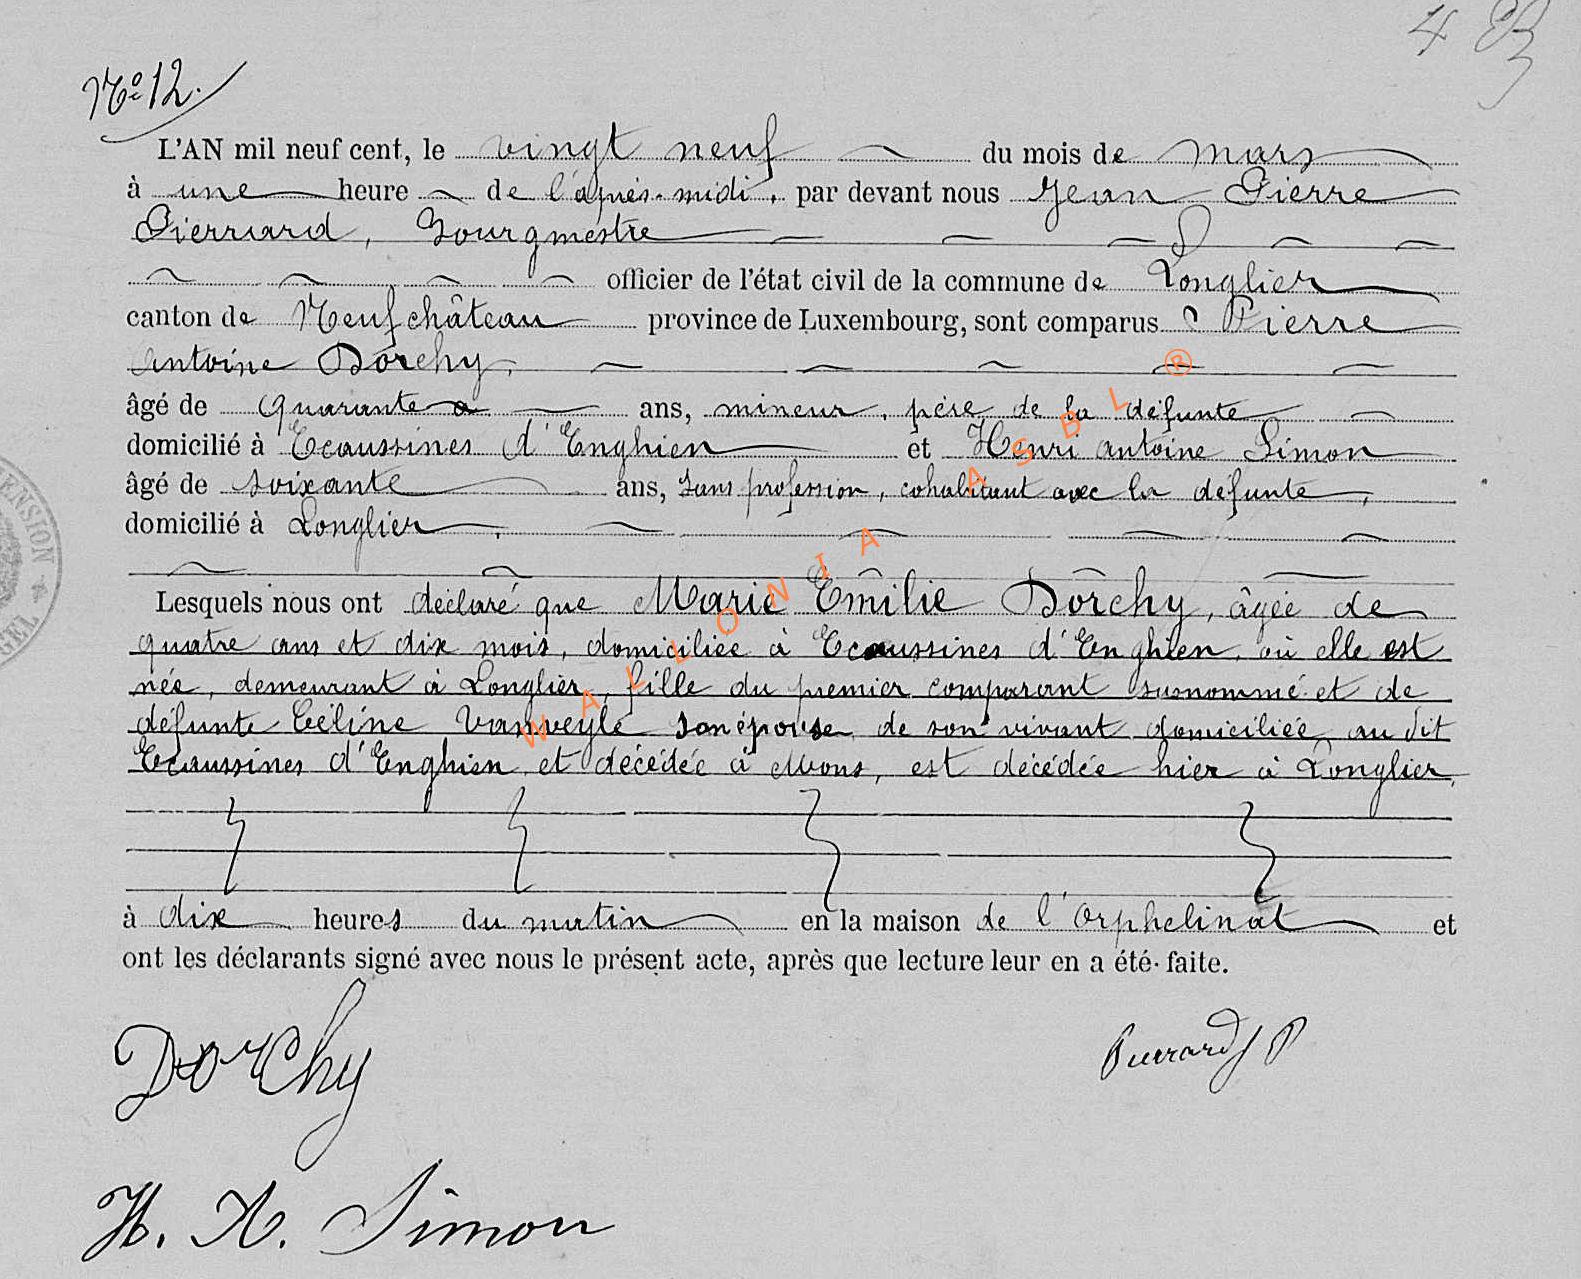 4
N° 12.
L'AN mil neuf cent, le vingt neuf du mois de mars
à une heure de l'après-midi, par devant nous Jean Pierre
Pierrard, Bourgmestre
officier de l'état civil de la commune de Longlier
canton de Neufchâteau province de Luxembourg, sont comparus Pierre
Antoine Dorchy,
âgé de quarante ans, mineur, père de la défunte
domicilié à Ecaussines d'Enghien et Henri Antoine Simon
âgé de soixante ans, sans profession, cohabitant avec la défunte,
domicilié à Longlier,
Lesquels nous ont déclaré que Marie Emilie Dorchy, âgée de
quatre ans et dix mois, domiciliée à Ecaussines d'Enghien, où elle est
née, demeurant à Longlier, fille du premier comparant susnommé et de
défunte Céline Vanweyle son épouse, de son vivant domiciliée au dit
Ecaussines d'Enghien, et décédée à Mons, est décédée hier à Longlier,
à dix heures du matin en la maison de l'Orphelinat et
ont les déclarants signé avec nous le présent acte, après que lecture leur en a été faite.
Dorchy
Pierrard J P
H. A. Simon
WALLONIA ASBL ®